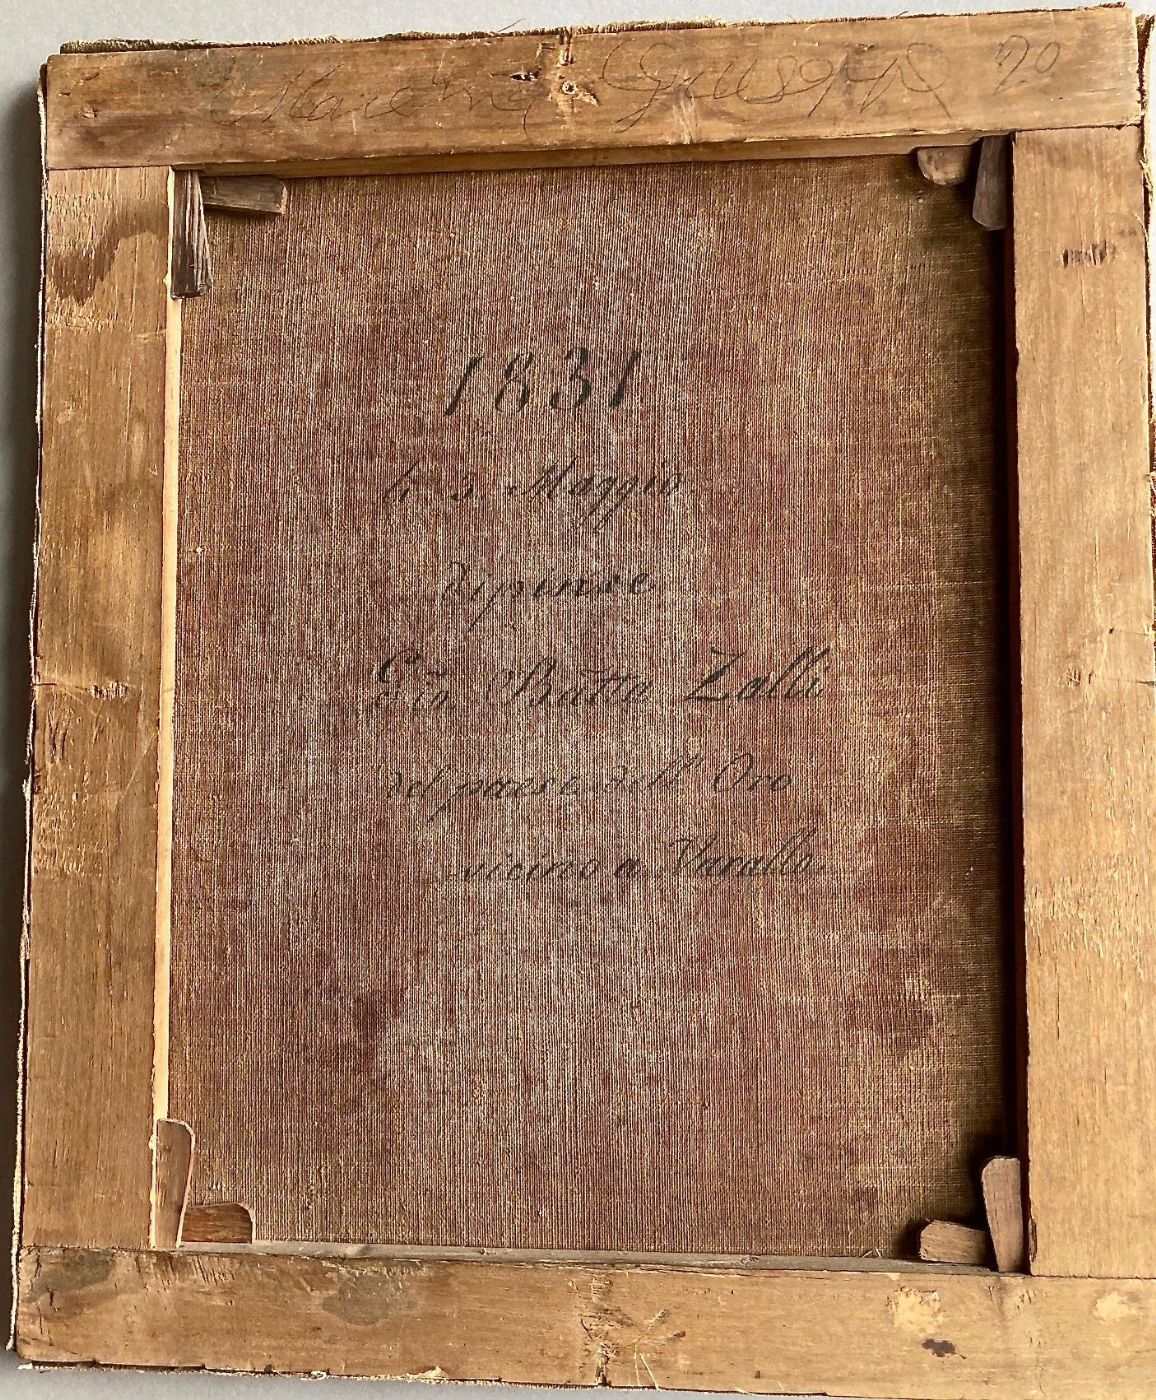 Giuseppe 70
1831
li 3. Maggio
dipinse
Gio. Batta Zolli
del paese dell' Oro
vicino a Varallo.